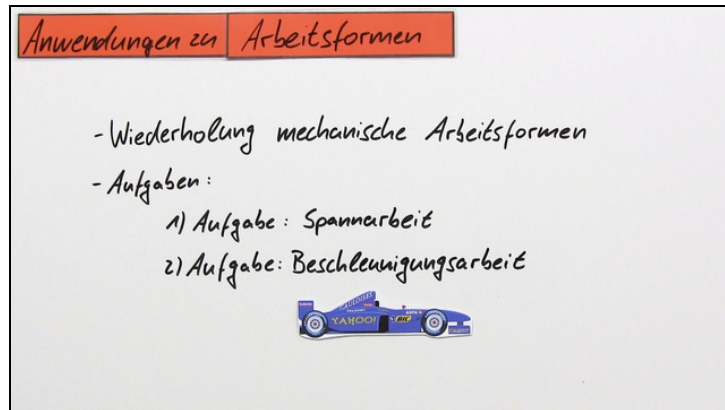 Anwendungen zu Arbeitsformen
- Wiederholung mechanische Arbeitsformen
- Aufgaben:
1) Aufgabe: Spannarbeit
2) Aufgabe: Beschleunigungsarbeit
GAULOISES
YAHOO!
BIC